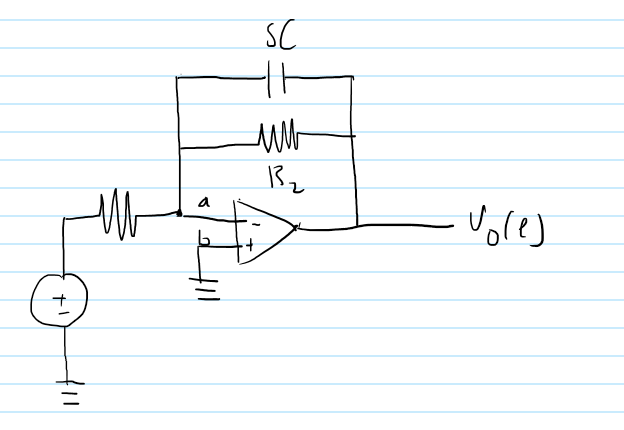 SC
R2
a
-
b
+
+
-
Vo(t)